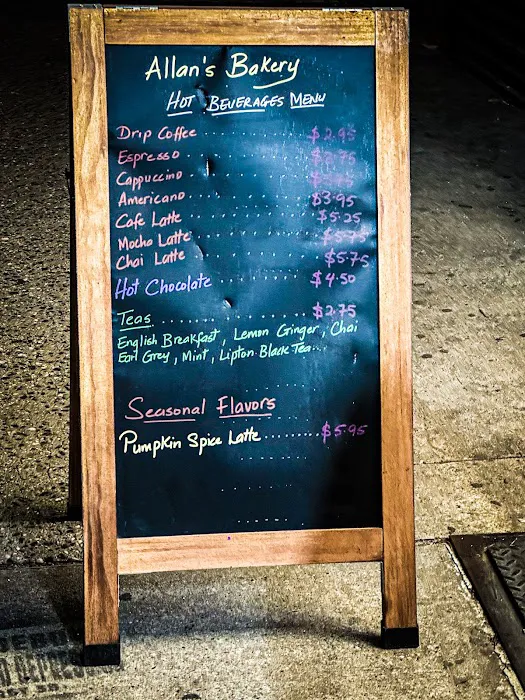 Allan's Bakery
Hot Beverages Menu
Drip Coffee ........ $2.95
Espresso ........
Cappuccino ........
Americano ........ $3.95
Cafe Latte ........ $5.25
Mocha Latte ........ $5.75
Chai Latte ........ $5.75
Hot Chocolate ........ $4.50
Teas ........ $2.75
English Breakfast, Lemon Ginger, Chai
Earl Grey, Mint, Lipton Black Tea...
Seasonal Flavors
Pumpkin Spice Latte ........ $5.95